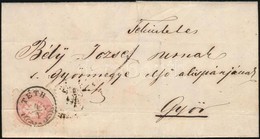 Tekintetes
Bély Jozsef urnak
s. Győrmegye első alispánjának
Győr
TÉTH